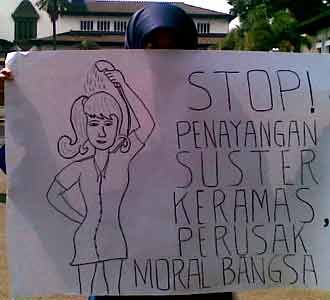 STOP!
PENAYANGAN
SUSTER
KERAMAS,
PERUSAK
MORAL BANGSA